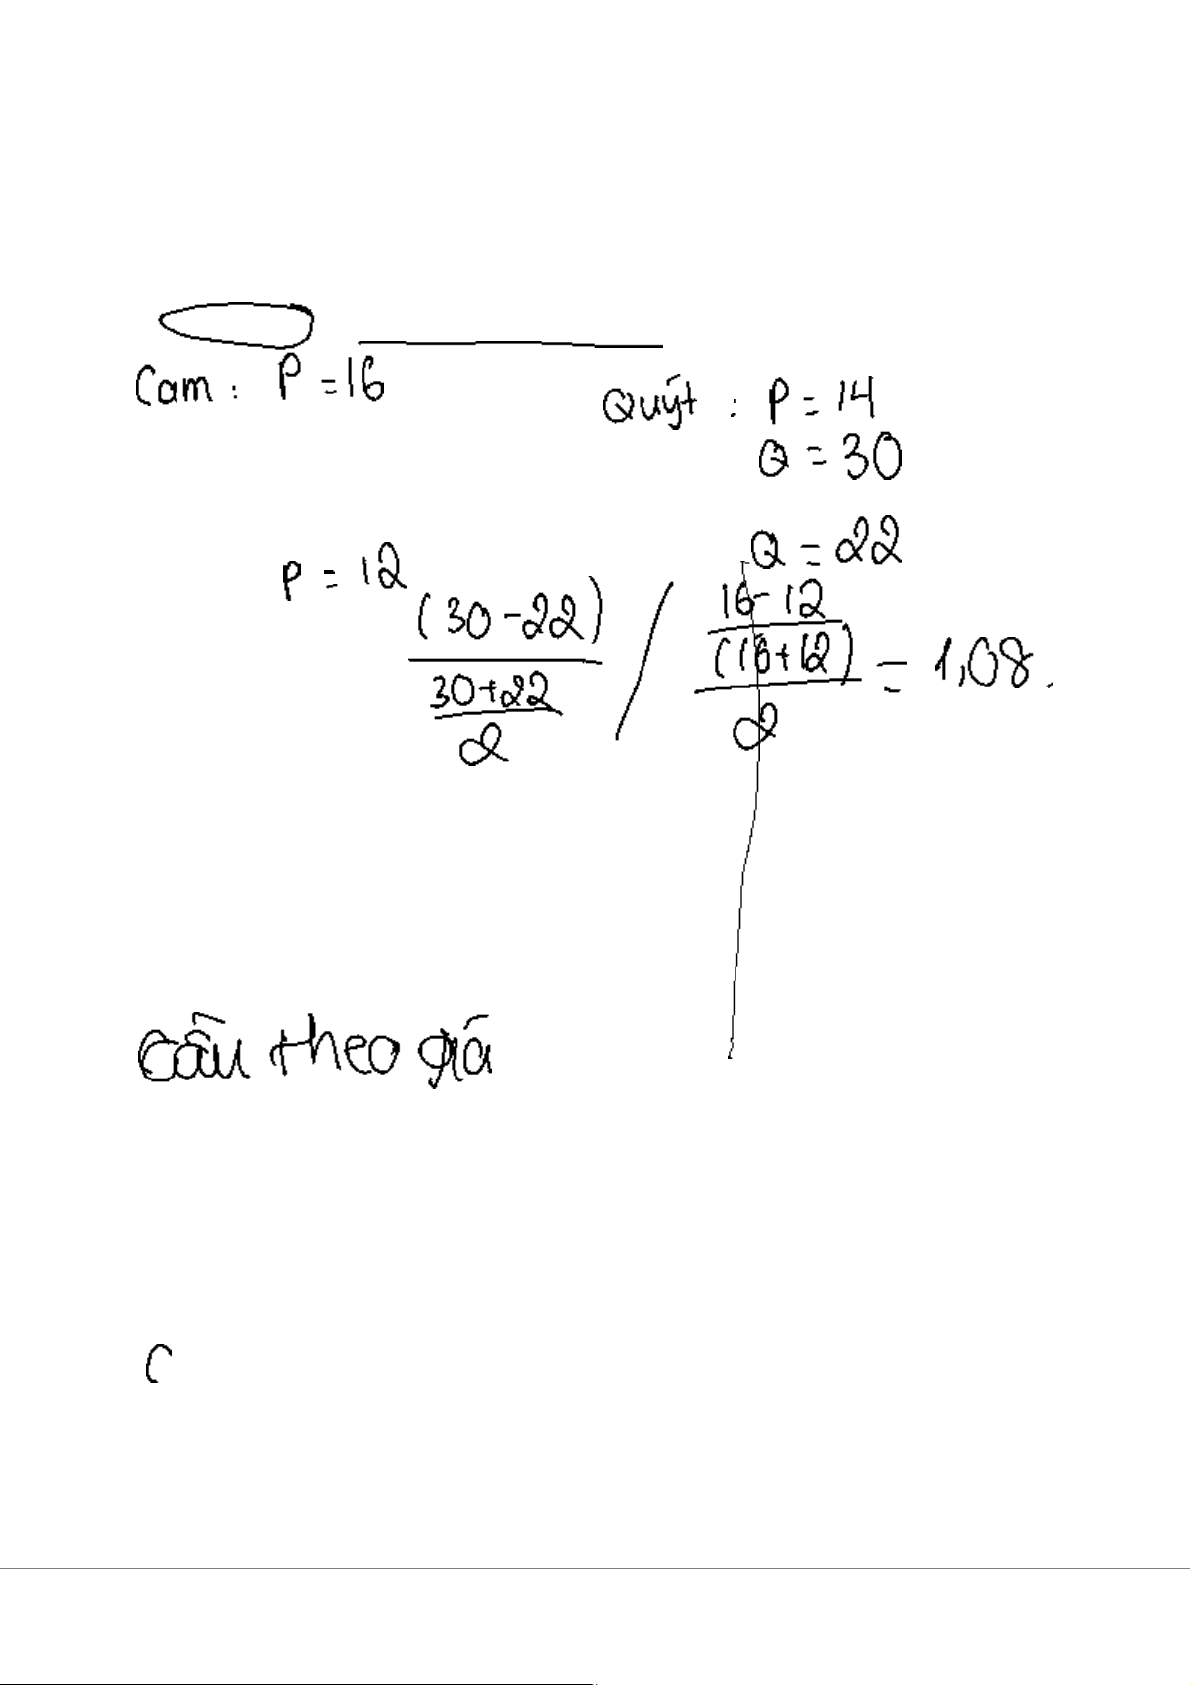 Cam : P = 16
Quýt : P = 14
Q = 30
Q = 22
P = 12
(30 - 22) / 16 - 12
30 + 22 (16 + 12) = 1,08.
2 2
cầu theo giá
C